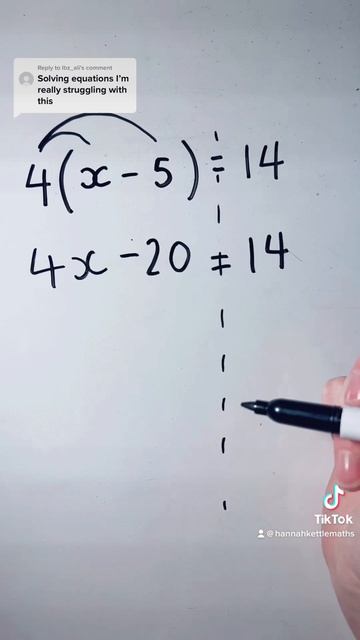 Reply to ibz_ali's comment
Solving equations I'm
really struggling with
this
4(x - 5) = 14
4x - 20 = 14
TikTok
@hannahkettlemaths